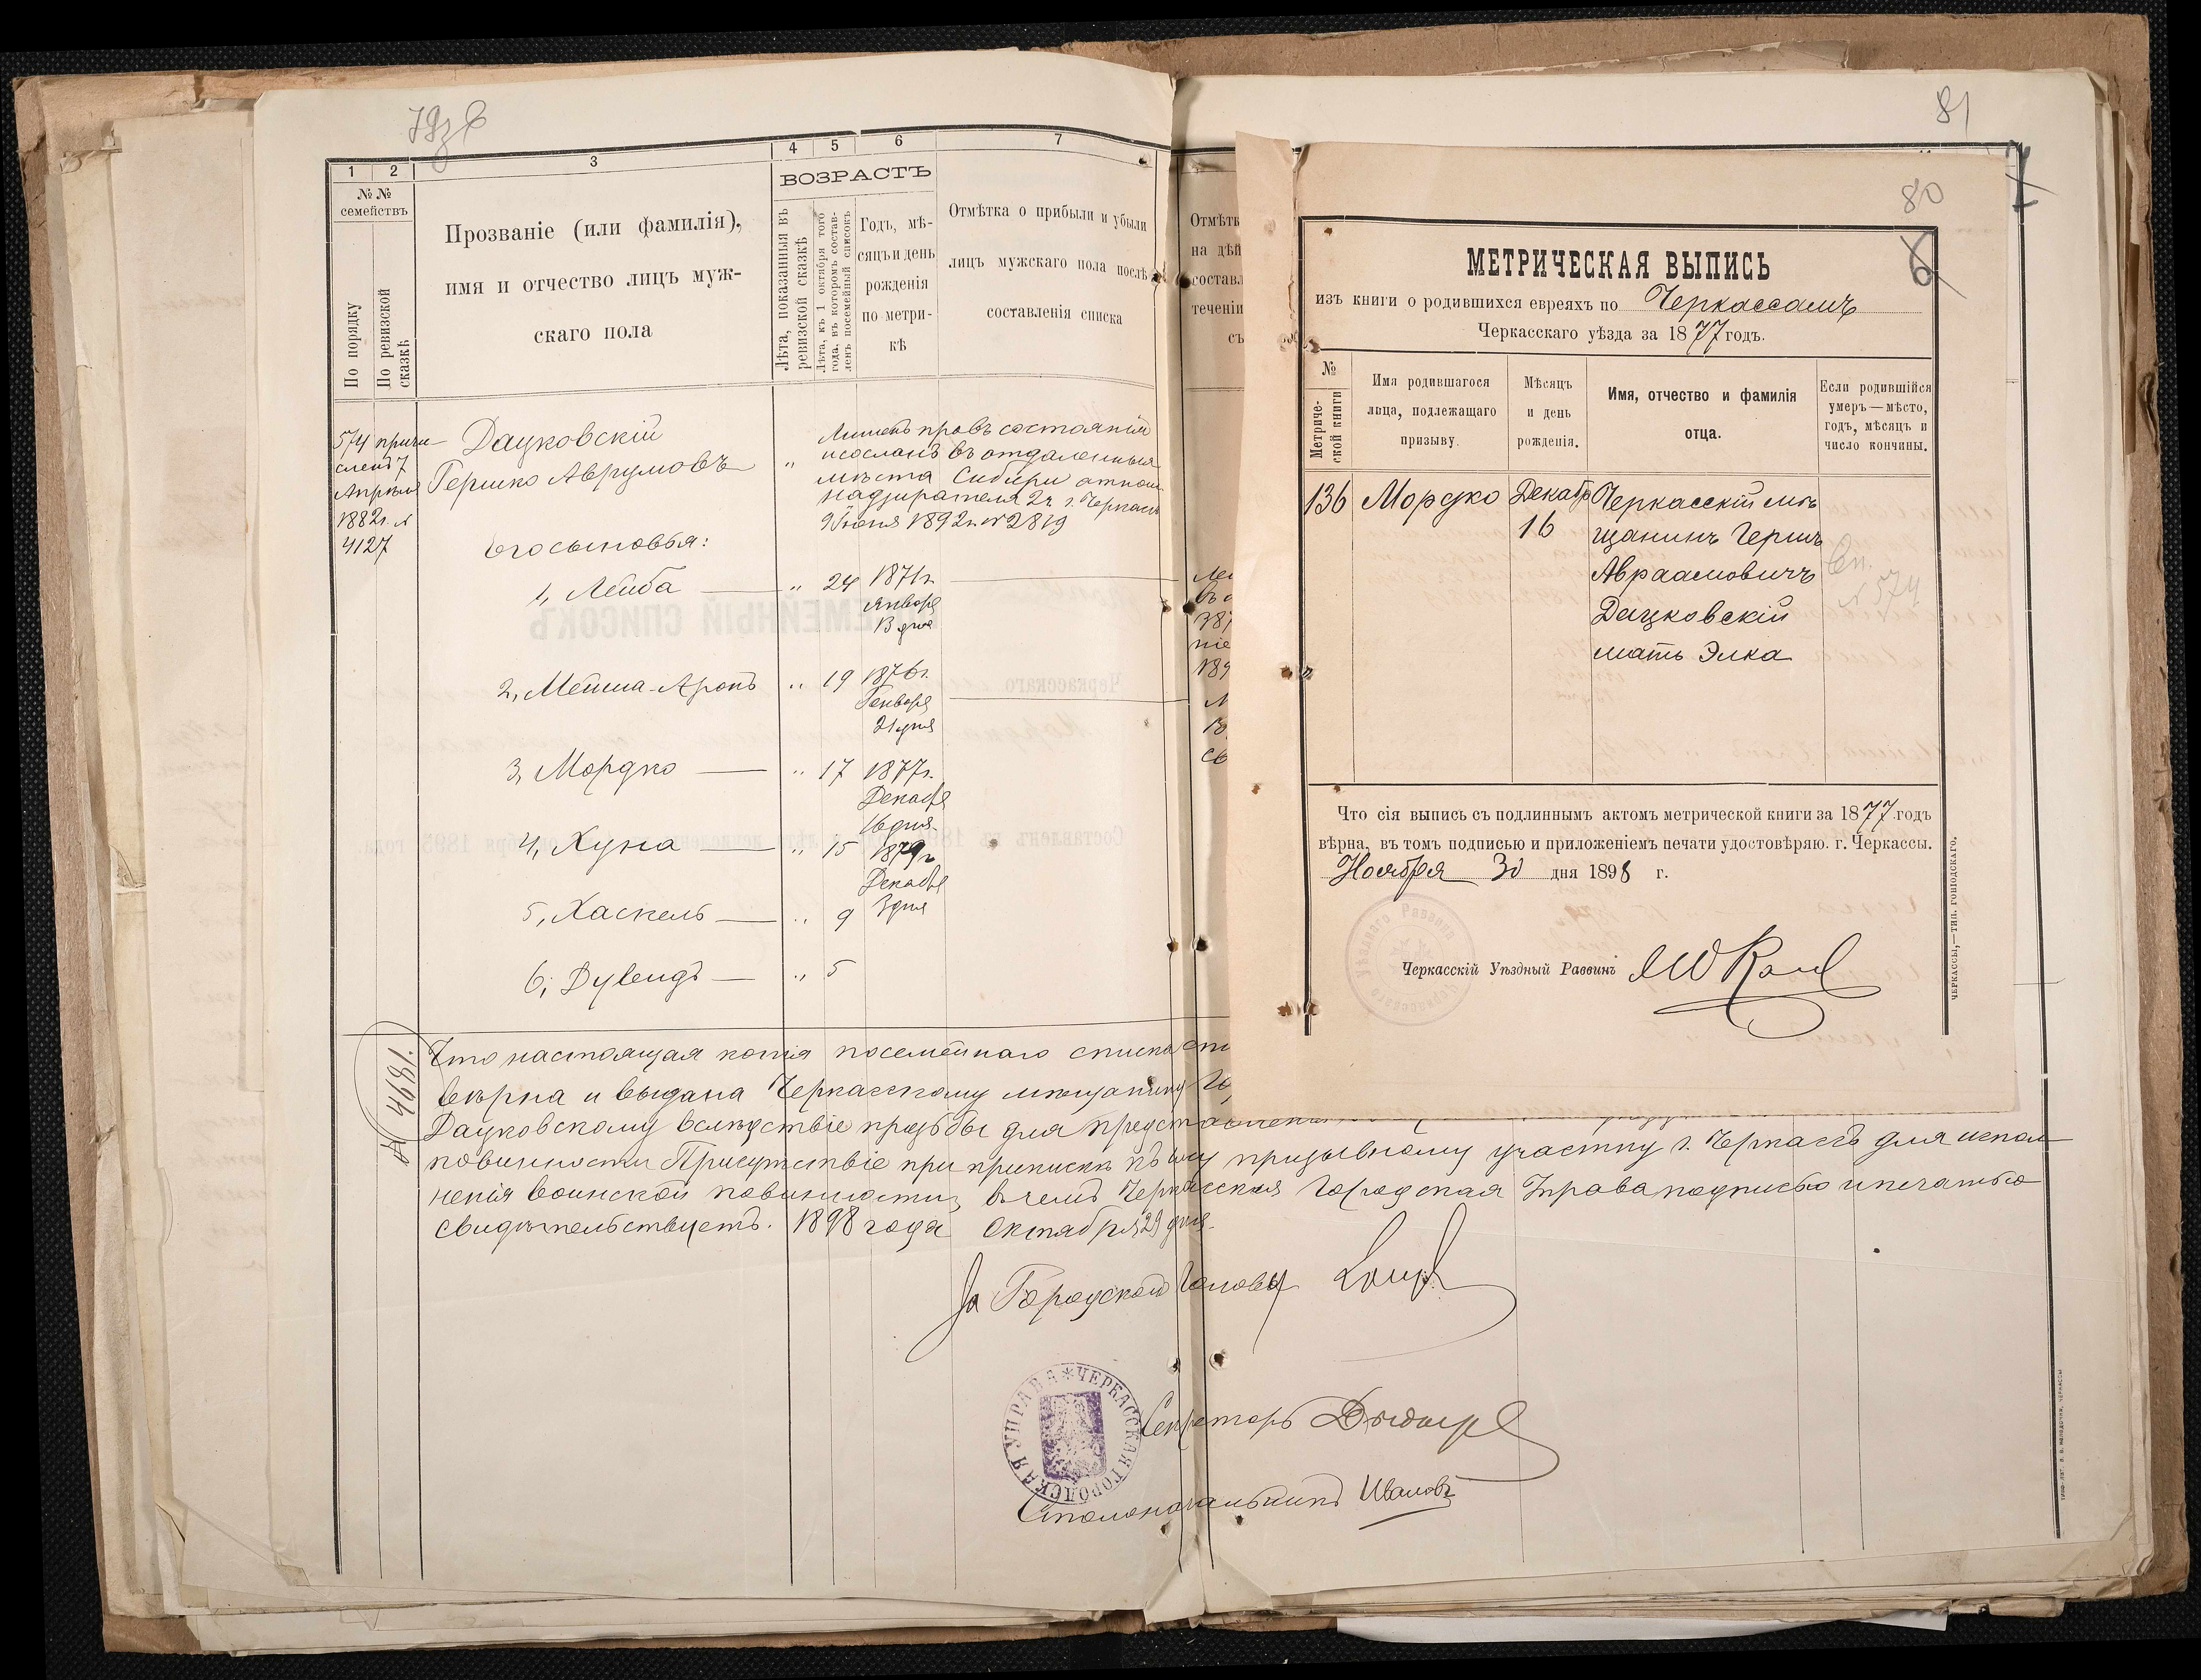 79
81
1
2
3
4
5
6
7
№ №
семействъ
По порядку
По ревизской
сказкѣ
Прозваніе (или фамилія),
имя и отчество лицъ муж-
скаго пола
ВОЗРАСТЪ
Лѣта, показанныя въ
ревизской сказкѣ
Лѣта, къ 1 октября того
года, въ которомъ состав-
ленъ посемейный списокъ
Годъ, мѣ-
сяцъ и день
рожденія
по метри-
кѣ
Отмѣтка о прибыли и убыли
лицъ мужскаго пола послѣ
составленія списка
574 причи-
сленъ 7
Апрѣля
1882г. №
4127
Дацковскій
Гершко Аврумовъ
"
Лишенъ правъ состоянія
и сосланъ въ отдаленныя
мѣста Сибири отнош
надзирателя 2ч. г. Черкасъ
9 Іюня 1892г. № 2819
его сыновья:
1, Лейба " 24 1871г.
Января
13 дня
2, Мейша-Аронъ " 19 1876г.
Генваря
21 дня
3, Мордко " 17 1877г.
Декабря
16 дня
4, Хуна " 15 1879г
Декабря
3 дня
5, Хаскель " 9
6, Дувидъ " 5
Отмѣтк
на дѣй
составл
теченіи
съ
387
ніе
189
№ 4681.
Что настоящая копія посемейнаго списка
вѣрна и выдана Черкасскому мѣщанину
Дацковскому вслѣдствіе прозьбы для представленія
повинности Присутствіе при припискѣ къ призывному участку г. Черкасъ для испол
ненія воинской повинности, въ чемъ Черкасская Городская Управа подписью и печатью
свидѣтельствуетъ. 1898 года Октября 29 дня.
За Городскаго Голову
ЧЕРКАССКАЯ ГОРОДСКАЯ УПРАВА
Секретарь
Столоначальникъ Ивановъ
80
6
МЕТРИЧЕСКАЯ ВЫПИСЬ
изъ книги о родившихся евреяхъ по Черкассамъ
Черкасскаго уѣзда за 1877 годъ.
№
Метриче-
ской книги
Имя родившагося
лица, подлежащаго
призыву.
Мѣсяцъ
и день
рожденія.
Имя, отчество и фамилія
отца.
Если родившійся
умеръ—мѣсто,
годъ, мѣсяцъ и
число кончины.
136 Мордко Декабр
16
Черкасскій мѣ
щанинъ Герш
Авраамовичъ
Дацковскій
мать Элка
Сп.
№ 574
Что сія выпись съ подлиннымъ актомъ метрической книги за 1877 годъ
вѣрна, въ томъ подписью и приложеніемъ печати удостовѣряю. г. Черкассы.
Ноября 30 дня 1898 г.
Черкасскаго Уѣзднаго Раввина
Черкасскій Уѣздный Раввинъ
ЧЕРКАССЫ,—ТИП. ГОВІОДСКАГО.